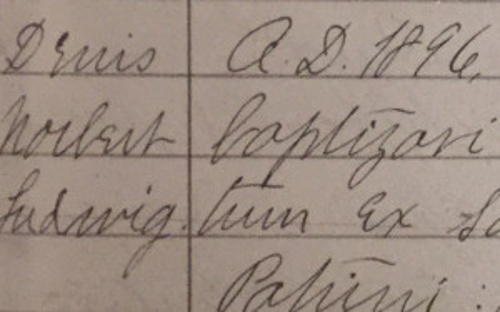 Denis A.D. 1896,
Norbert baptizavi
Ludwig. tum ex
Patrini :